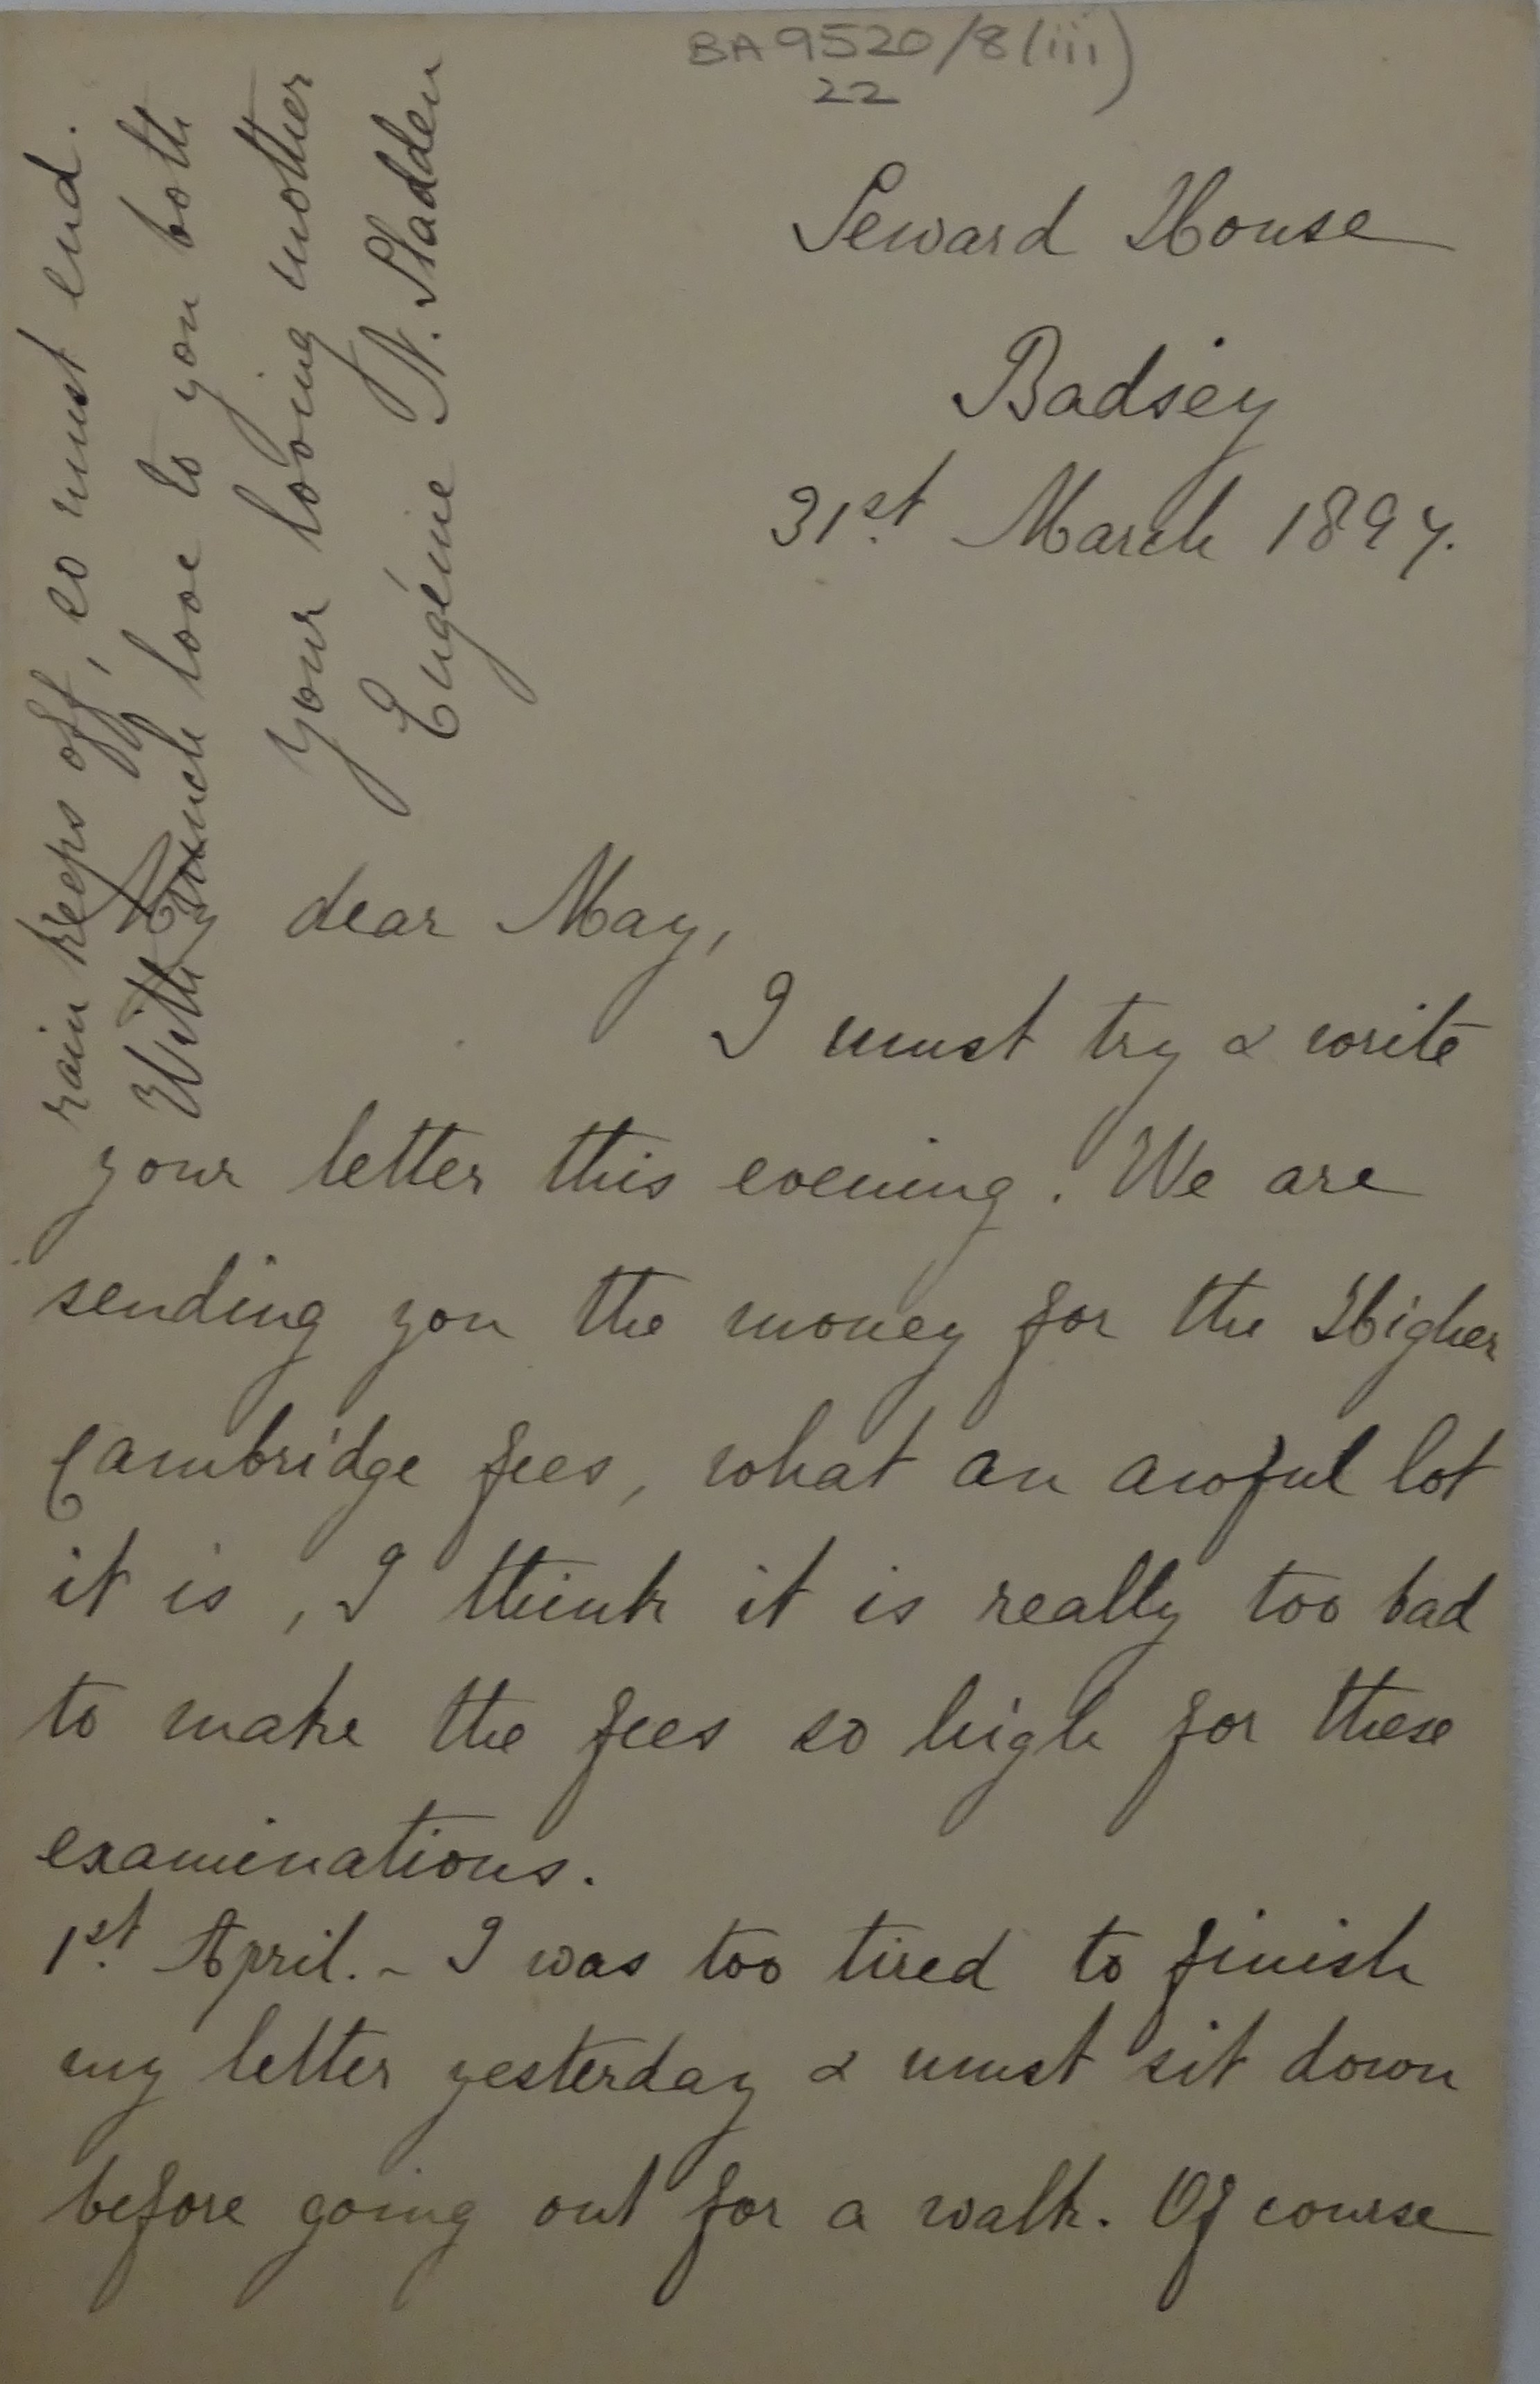 BA 9520/8(iii)
22
Seward House
Badsey
31st March 1897.
My dear May,
I must try & write
your letter this evening. We are
sending you the money for the Higher
Cambridge fees, what an awful lot
it is, I think it is really too bad
to make the fees so high for these
examinations.
1st April. - I was too tired to finish
my letter yesterday & must sit down
before going out for a walk. Of course
rain keeps off, so must end.
With much love to you both
your loving mother
Eugénie N. Sladden